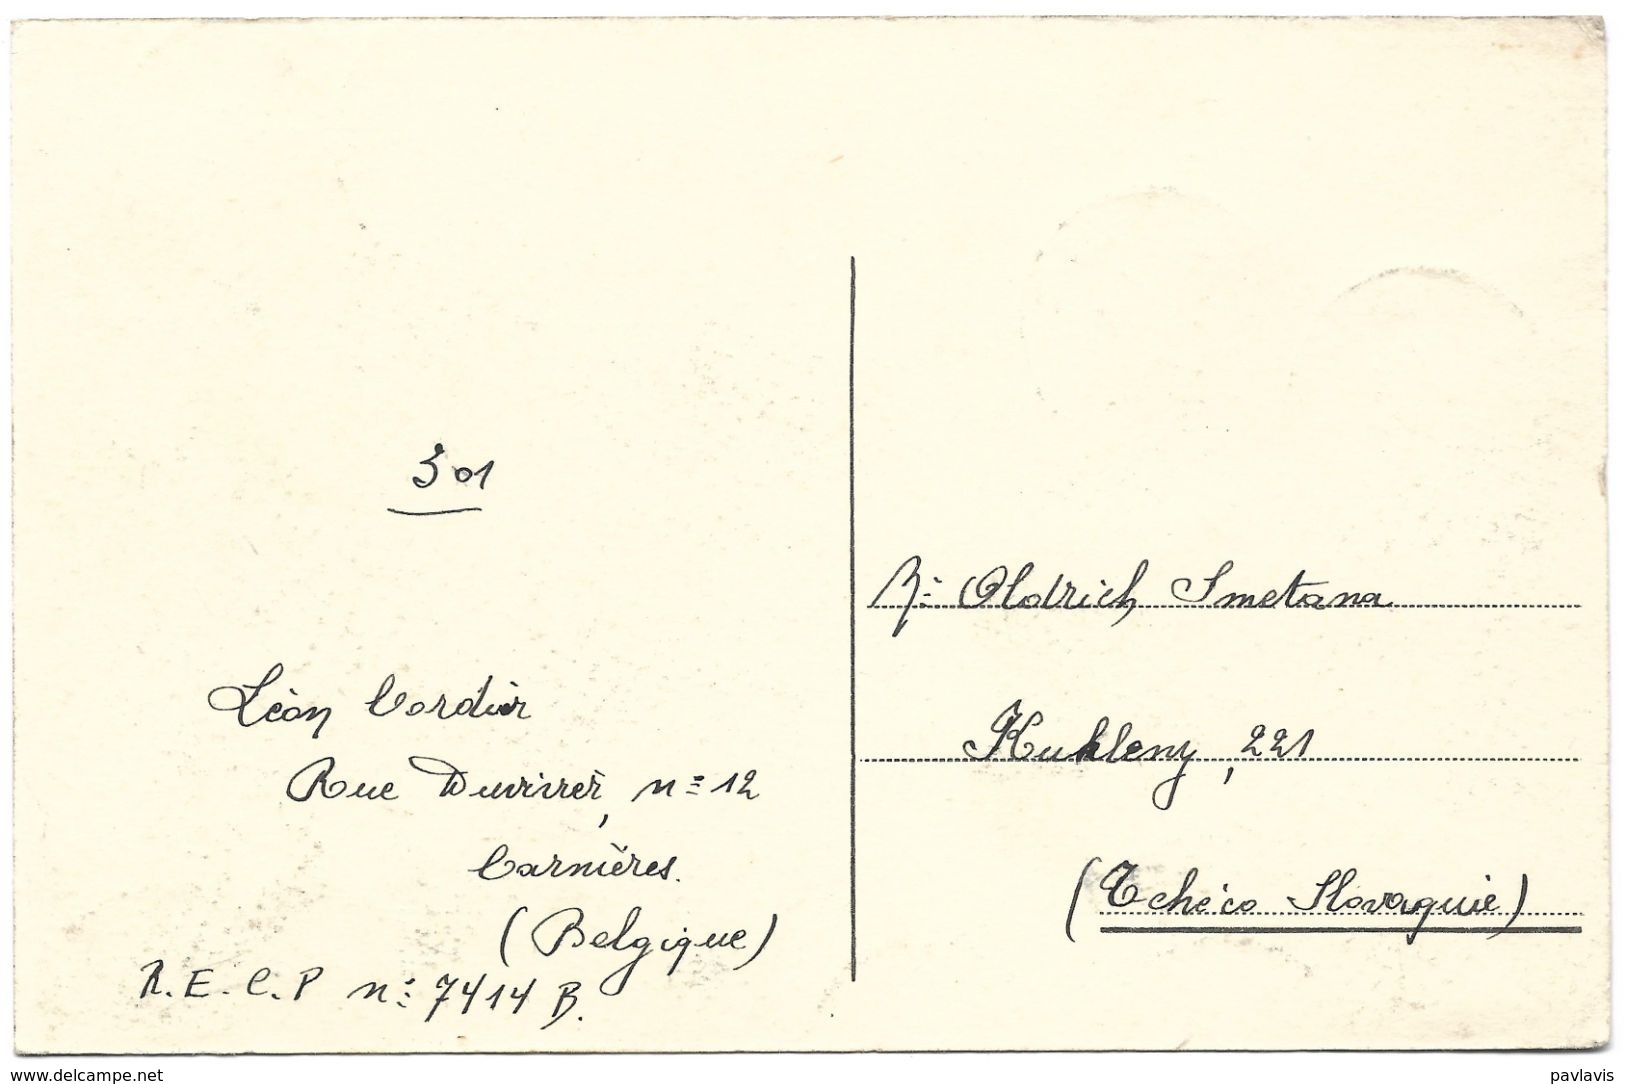 301
Léon Cordier
Rue Duvivier, n° 12
Carnières.
(Belgique)
R.E.C.P n° 7414 B.
Mr Oldrich Smetana
Kukleny, 221
(Tchéco Slovaquie)
www.delcampe.net
pavlavis